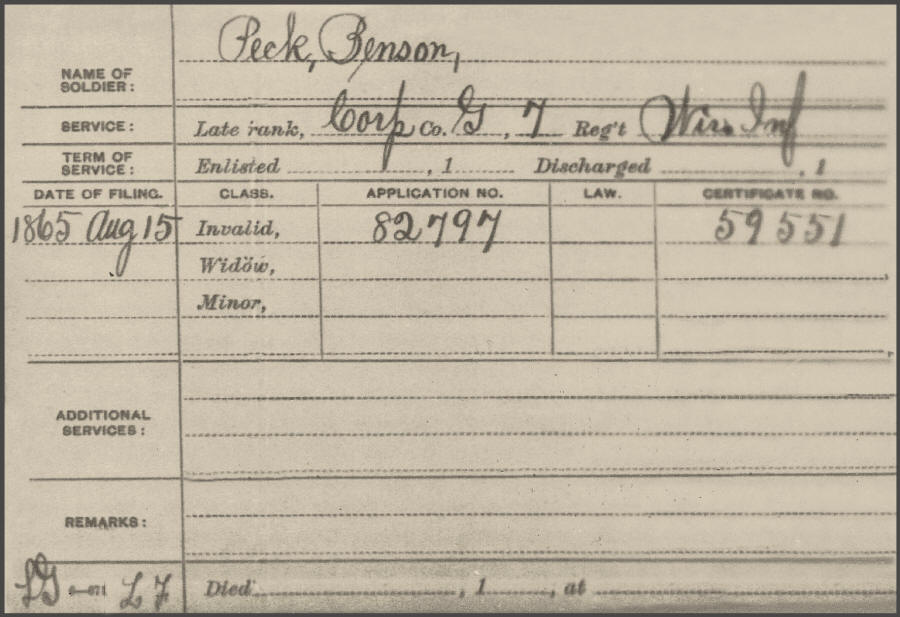 Peck, Benson,
NAME OF
SOLDIER:
SERVICE: Late rank, Corp Co. G, 7 Reg't Wis. Inf
TERM OF
SERVICE: Enlisted , 1 Discharged , 1
DATE OF FILING. CLASS. APPLICATION NO. LAW. CERTIFICATE NO.
1865 Aug 15 Invalid, 82797 59551
Widow,
Minor,
ADDITIONAL
SERVICES:
REMARKS:
Died , 1 , at